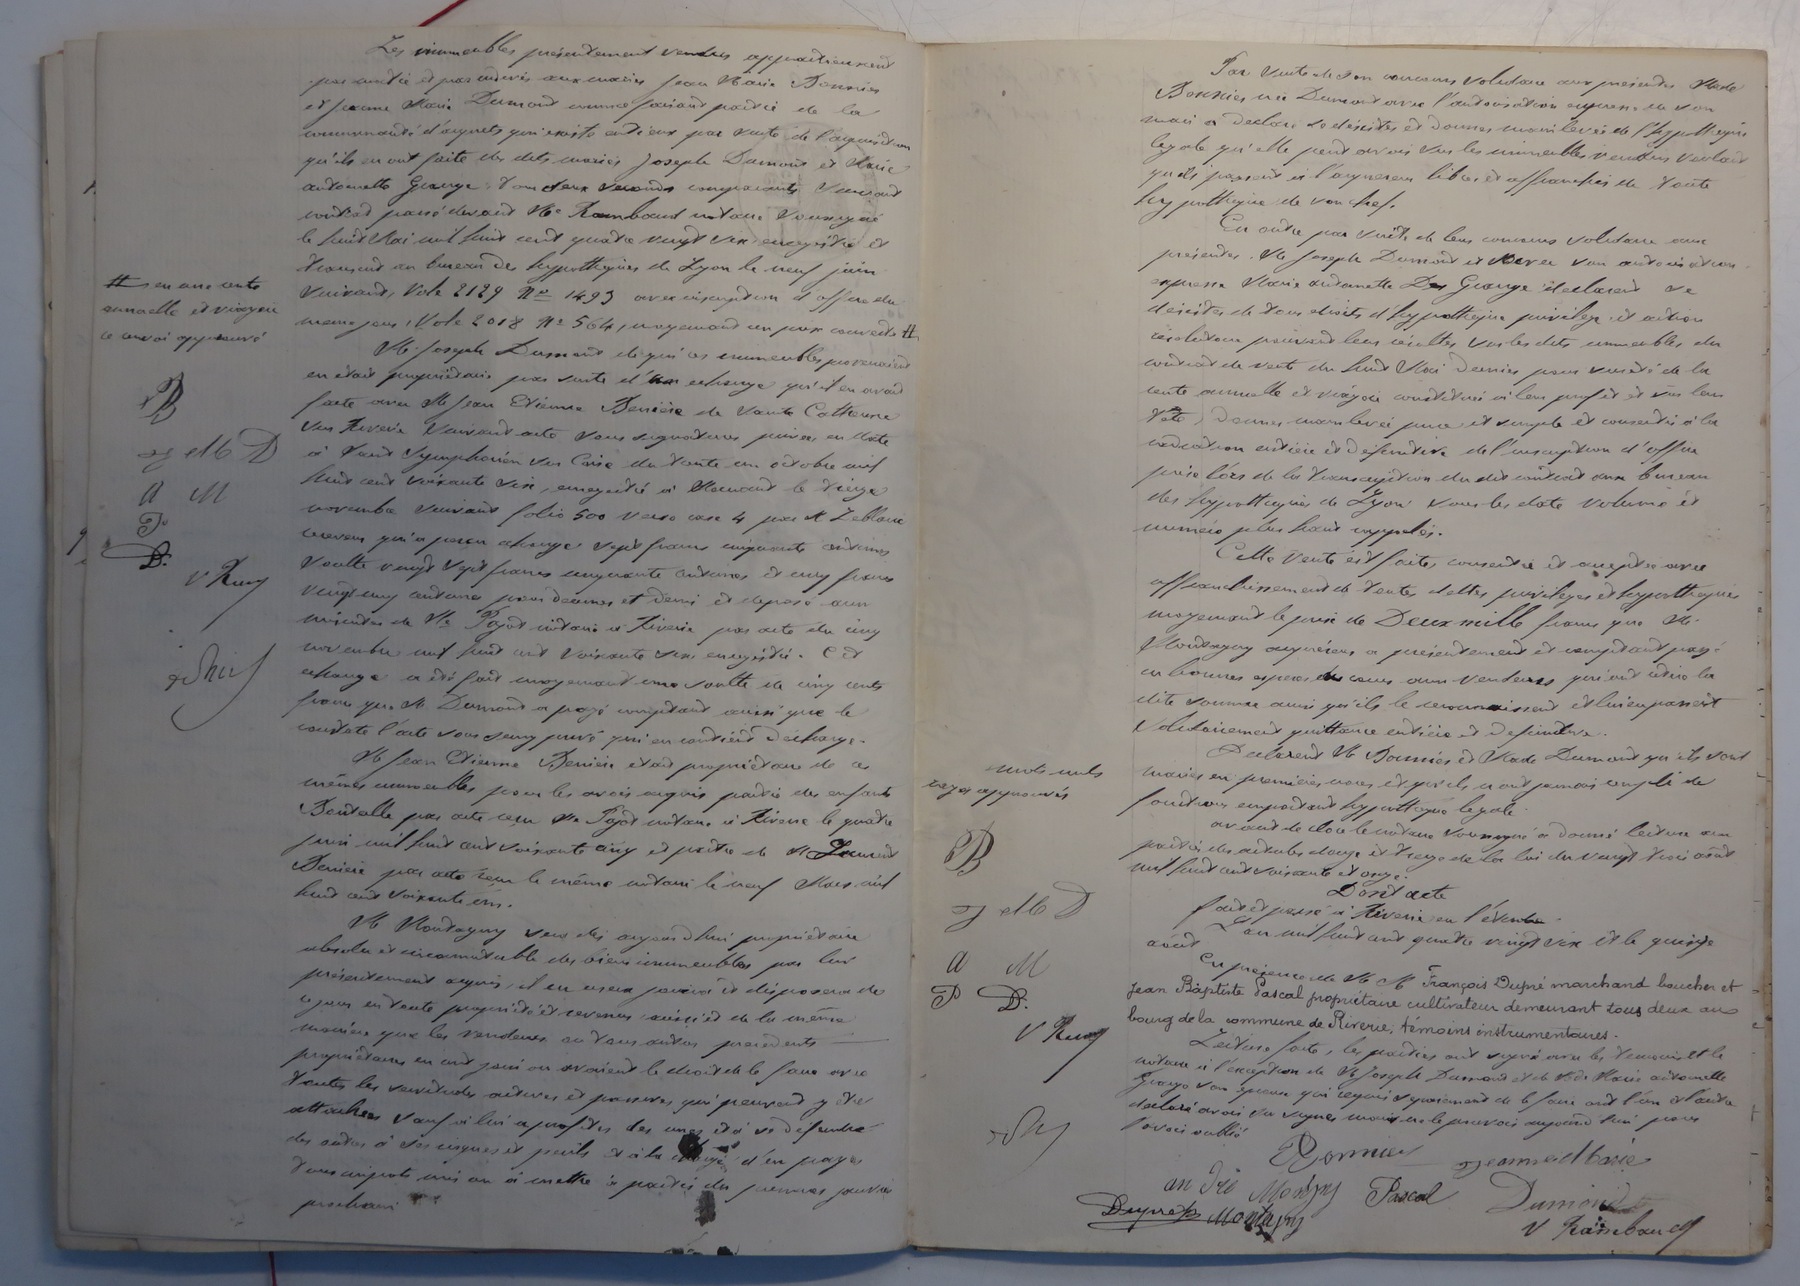 Les immeubles présentement vendus appartiennent
par moitié et par indivis aux mariés Jean Marie Bonnier
et Jeanne Marie Dumond comme faisant partie de la
communauté d'acquets qui existe entr'eux par suite de l'acquisition
qu'ils en ont faite des dits mariés Joseph Dumond et Marie
antoinette Grange tous deux seconds comparants suivant
contrat passé devant Me Rambaud notaire soussigné
le huit Mai mil huit cent quatre vingt six, enregistré et
transcrit au bureau des hypothèques de Lyon le neuf juin
suivant, Vole 2129 No 1493 avec inscription d'office du
même jour, Vole 2018 No 564, moyennant un prix converti #
# en une rente
annuelle et viagère
ce renvoi approuvé
M. Joseph Dumond de qui ces immeubles provenaient
en était propriétaire par suite d'un echange qu'il en avait
faite avec M. Jean Etienne Benière de Sainte Catherine
sur Riverie suivant acte sous signatures privées en date
à Saint Symphorien sur Coise du trente un octobre mil
huit cent soixante six, enregistré à Mornant le treize
novembre suivant folio 500 verso case 4 par M. Leblanc
receveur qui a perçu echange sept francs cinquante centimes
soulte vingt sept francs cinquante centimes et cinq francs
vingt cinq centimes pour decimes et demi et déposé aux
minutes de Me Pojot notaire à Riverie par acte du cinq
novembre mil huit cent soixante six enregistré. Cet
echange a été fait moyennant une soulte de cinq cents
francs que M. Dumond a payé comptant ainsi que le
constate l'acte sous seing privé qui en contient décharge.
M. Jean Etienne Benière était propriétaire de ces
mêmes immeubles pour les avoir acquis partie des enfants
Bouteille par acte reçu Me Pojot notaire à Riverie le quatre
juin mil huit cent soixante cinq et partie de M. Laurent
Benière par acte reçu le même notaire le neuf Mars mil
huit cent soixante six.
M. Montagny sera dès aujourd'hui propriétaire
absolu et incommutable des biens immeubles par lui
présentement acquis, il en usera jouira et disposera de
ce jour en toute propriété et revenus ainsi et de la même
manière que les vendeurs ou tous autres précédents
propriétaires en ont joui ou avaient le droit de le faire avec
toutes les servitudes actives et passives qui peuvent y être
attachées sauf à lui à profiter des unes et à se défendre
des autres à ses risques et périls et à la charge d'en payer
tous impots mis ou à mettre à partir du premier janvier
prochain
B
J M D
A M
P
D.
V Ram
Par suite de son concours volontaire aux présentes Made
Bonnier née Dumond avec l'autorisation expresse de son
mari a déclaré se désister et donner mainlevée de l'hypothèque
légale qu'elle peut avoir sur les immeubles vendus voulant
qu'ils passent à l'acquéreur libres et affranchis de toute
hypothèque de son chef.
En outre par suite de leur concours volontaire aux
présentes, M. Joseph Dumond et avec son autorisation
expresse Marie antoinette Grange déclarent se
désister de tous droits d'hypothèque privilège et action
résolutoire pouvant leur résulter sur les dits immeubles du
contrat de vente du huit Mai dernier pour sureté de la
rente annuelle et viagère constituée à leur profit et sur leur
tête, donner mainlevée pure et simple et consentir à la
radiation entière et définitive de l'inscription d'office
prise lors de la transcription du dit contrat au bureau
des hypothèques de Lyon sous les date volume et
numéro plus haut rappelés.
Cette vente est faite, consentie et acceptée avec
affranchissement de toutes dettes privilèges et hypothèques
moyennant le prix de Deux mille francs que M.
Montagny acquéreur a présentement et comptant payé
en bonnes espèces de cours aux vendeurs qui ont retiré la
dite somme ainsi qu'ils le reconnaissent et lui en passent
solidairement quittance entière et définitive.
Déclarent M. Bonnier et Made Dumond qu'ils sont
mariés en premières noces et qu'ils n'ont jamais rempli de
fonctions emportant hypothèque légale.
avant de clore le notaire soussigné a donné lecture aux
parties des articles douze et treize de la loi du vingt trois août
mil huit cent soixante et onze.
Dont acte
fait et passé à Riverie en l'étude
L'an mil huit cent quatre vingt six et le quinze
août
En présence de M. M. François Dupré marchand boucher et
Jean Baptiste Pascal propriétaire cultivateur demeurant tous deux au
bourg de la commune de Riverie, témoins instrumentaires.
Lecture faite, les parties ont signé avec les témoins et le
notaire à l'exception de M. Joseph Dumond et de Made Marie antoinette
Grange son épouse qui requis séparément de le faire ont l'un et l'autre
déclaré avoir su signer mais ne le pouvoir aujourd'hui pour
l'avoir oublié
mots nuls
rayés approuvés
B
J M D
A M
P D.
V Ram
Bonnier Jeanne Marie
Pascal Dumond
Dupré Montagny V Rambaud